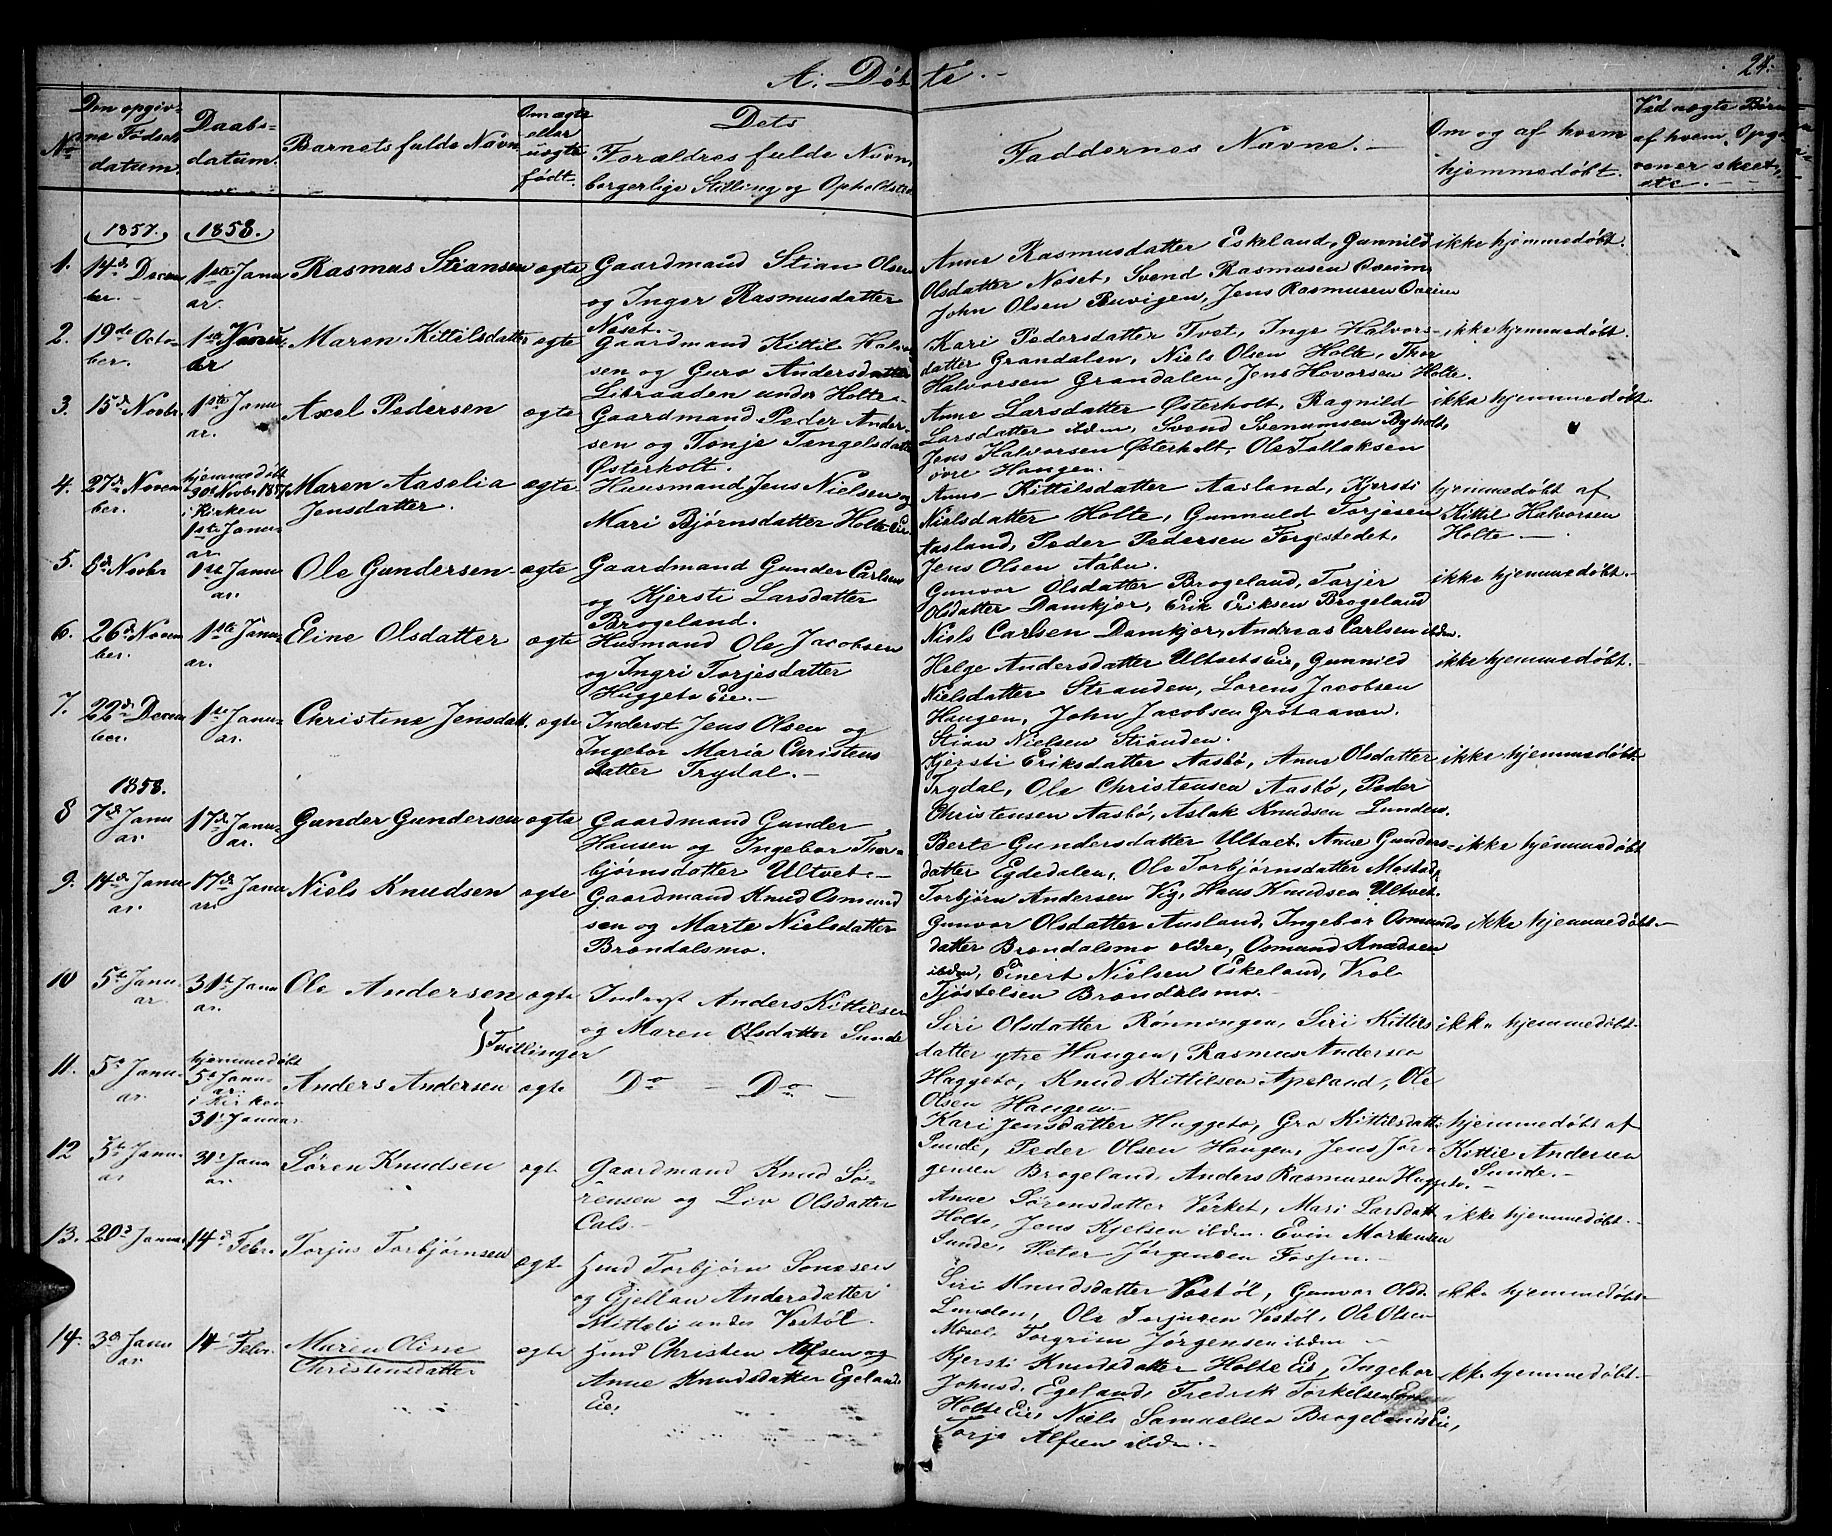 A. Døbte. 24.
No
Den opgivne Fødselsdatum.
Daabsdatum.
Barnets fulde Navn
Om ægte eller uægte født.
Dets Forældres fulde Navn, borgerlige Stilling og Opholdsted
Faddernes Navne.
Om og af hvem hjemmedøbt.
Ved uægte Børn af hvem Opgivener skeet, etc.
1857. 1858.
1. 14d Decem
ber.
1ste Janu
ar.
Rasmus Stiansen ægte
Gaardmand Stian Olsen
og Inger Rasmusdatter
Næset.
Anne Rasmusdatter Eskeland, Gunnild
Olsdatter Næset, Svend Rasmusen
John Olsen Buvigen, Jens Rasmusen
ikke hjemmedøbt.
2. 19de Octo-
ber.
1ste Janu
ar
Maren Kittilsdatter ægte
Gaardmand Kittil Halvor
sen og Guro Andersdatter
Libraaden under Holte
Kari Pedersdatter Tvet, Inge Halvors-
datter Grandalen, Niels Olsen Holte, Thor
Halvorsen Grandalen, Jens Hovorsen Holte.
ikke hjemmedøbt.
3. 15d Novbr
1ste Janu
ar.
Axel Pedersen ægte
Gaardmand Peder Ander-
sen og Tonje Tengelsdatter
Østerholt.
Anne Larsdatter Østerholt, Ragnild
Larsdatter ibdm, Svend Svenumsen Byholt,
Jens Halvorsen Østerholt, Ole Tallaksen
øvre Haugen.
ikke hjemmedøbt
4. 27d Novem
ber.
hjemmedøbt
30te Novbr 1857
i Kirken
1ste Janu-
ar.
Maren Aaselia
Jensdatter.
ægte
Huusmand Jens Nielsen og
Mari Bjørnsdatter Holte Eie
Anne Kittilsdatter Aasland, Kjersti
Nielsdatter Holte, Gunnuld Torjesen
Aasland, Peder Pedersen Forgestedet,
Jens Olsen Aabu.
hjemmedøbt af
Kittil Halvorsen
Holte
5. 8d Novbr
1ste Janu
ar.
Ole Gundersen ægte
Gaardmand Gunder Carlsen
og Kjersti Larsdatter
Brøgeland.
Gunvor Olsdatter Brøgeland, Torjer
Olsdatter Damkjør, Erik Eriksen Brøgeland
Niels Carlsen Damkjør, Andreas Carlsen ibdm.
ikke hjemmedøbt.
6. 26d Novem
ber.
1ste Janu-
ar.
Eline Olsdatter ægte
Husmand Ole Jacobsen
og Ingri Torjesdatter
Huggeto Eie.
Helge Andersdatter Ultvets Eie, Gunnild
Nielsdatter Stranden, Lorens Jacobsen
Haugen, John Jacobsen Grotaaren.
Stian Nielsen Stranden.
ikke hjemmedøbt.
7. 22d Decem
ber.
1ste Janu-
ar.
Christine Jensdat. ægte
Inderst Jens Olsen og
Ingebor Maria Christens
datter Trydal.
Kjersti Eriksdatter Aasbø, Anne Olsdatter
Trydal, Ole Christensen Aasbø, Peder
Christensen Aasbø, Aslak Knudsen Lunden.
ikke hjemmedøbt
1858.
8 7d Janu
ar.
17d Janu-
ar.
Gunder Gundersen ægte
Gaardmand Gunder
Hansen og Ingebor Thor-
bjørnsdatter Ultvet.
Berte Gundersdatter Ultvet, Anne Gunders-
datter Egdedalen, Ole Torbjørnsdatter
Torbjørn Andersen Vig, Hans Knudsen Ultvet.
ikke hjemmedøbt
9. 14d Janu
ar.
17d Janu
ar.
Niels Knudsen ægte
Gaardmand Knud Osmund
sen og Marte Nielsdatter
Brøndalsmo.
Gunvor Olsdatter Ausland, Ingebor Osmunds
datter Brøndalsmo ældre, Osmund Knudsen
ibdm, Einert Nielsen Eskeland, Vrol
Tjøstelsen Brøndalsmo.
ikke hjemmedøbt
10 5te Janu-
ar.
31te Janu
ar.
Ole Andersen ægte
Inderst Anders Kittilsen
og Maren Olsdatter Sunde
Siri Olsdatter Rønningen, Siri Kittils
datter ytre Haugen, Rasmus Andersen
Haggeto, Knud Kittilsen Apeland, Ole
Olsen Haugen
ikke hjemmedøbt
Tvillinger
11. 5te Janu-
ar.
hjemmedøbt
5te Janu-
ar.
i Kirken
31te Januar.
Anders Andersen ægte
Do – Do –
Kari Jensdatter Huggeto, Gro Kittilsdatt.
Sunde, Peder Olsen Haugen, Jens Jør-
gensen Brøgeland, Anders Rasmusen Huggeto.
hjemmedøbt af
Kittil Andersen
Sunde.
12 5te Janu-
ar
31te Janu
ar.
Søren Knudsen ægte
Gaardmand Knud Sø-
rensen og Liv Olsdatter
Cals.
Anne Sørensdatter Værket, Mari Larsdatt
Holte, Jens Kjelsen ibdm. Even Mortensen
Sunde, Peter Jørgensen Fosjen.
ikke hjemmedøbt.
13. 20d Januar
14d Febr.
Torjus Torbjørnsen ægte
Hmd Torbjørn Sonesen
og Gjellau Andersdatter
Mitteli under Vestøl.
Siri Knudsdatter Vestøl, Gunvor Olsd.
Lunden, Ole Torjusen Vestøl, Ole Olsen
Mæsel Torgrim Jørgensen ibdm
ikke hjemmedøbt
14. 3d Janu
ar.
14d Febr.
Maren Oline
Christensdatter
ægte
Hmd Christen Alfsen og
Anne Knudsdatter Egelands
Eie.
Kjersti Knudsdatter Holte Eie, Ingebor
Johnsd. Egeland, Fredrik Torkelsen
Holte Eie, Niels Samuelsen Brøgelands Eie,
Torje Alfsen ibdm.
ikke hjemmedøbt